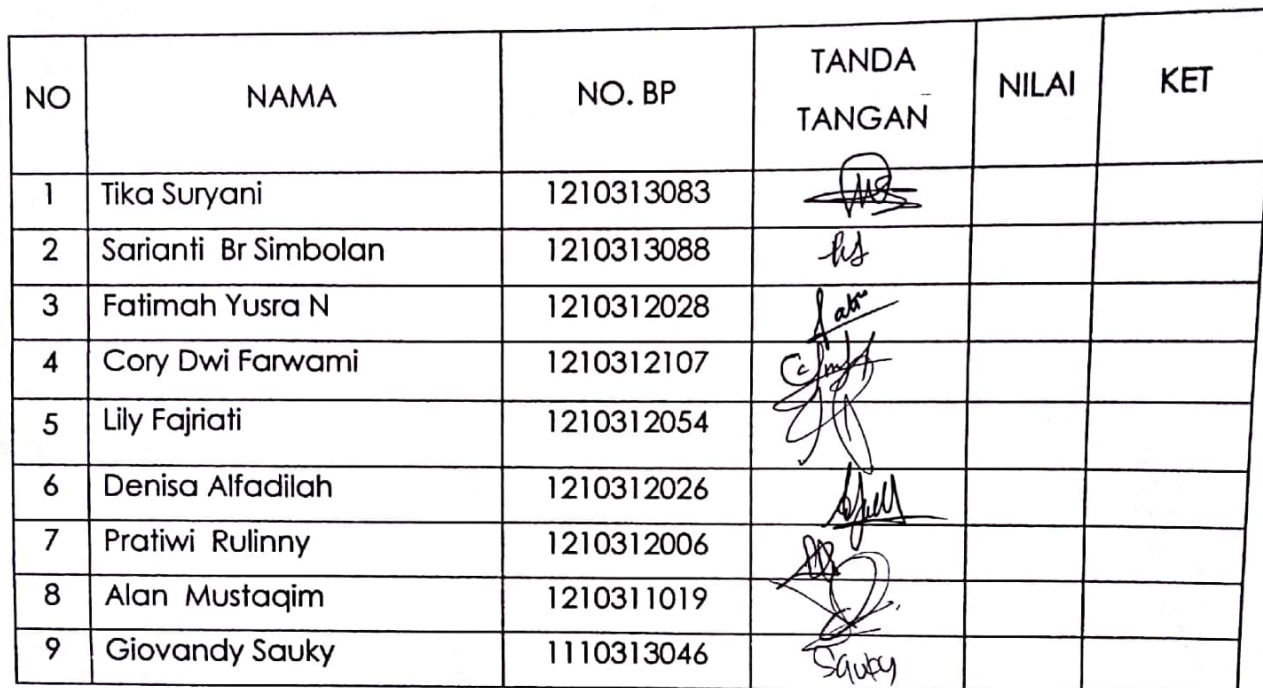 NO NAMA NO. BP TANDA TANGAN NILAI KET
1 Tika Suryani 1210313083
2 Sarianti Br Simbolan 1210313088
3 Fatimah Yusra N 1210312028
4 Cory Dwi Farwami 1210312107
5 Lily Fajriati 1210312054
6 Denisa Alfadilah 1210312026
7 Pratiwi Rulinny 1210312006
8 Alan Mustaqim 1210311019
9 Giovandy Sauky 1110313046 Sauky